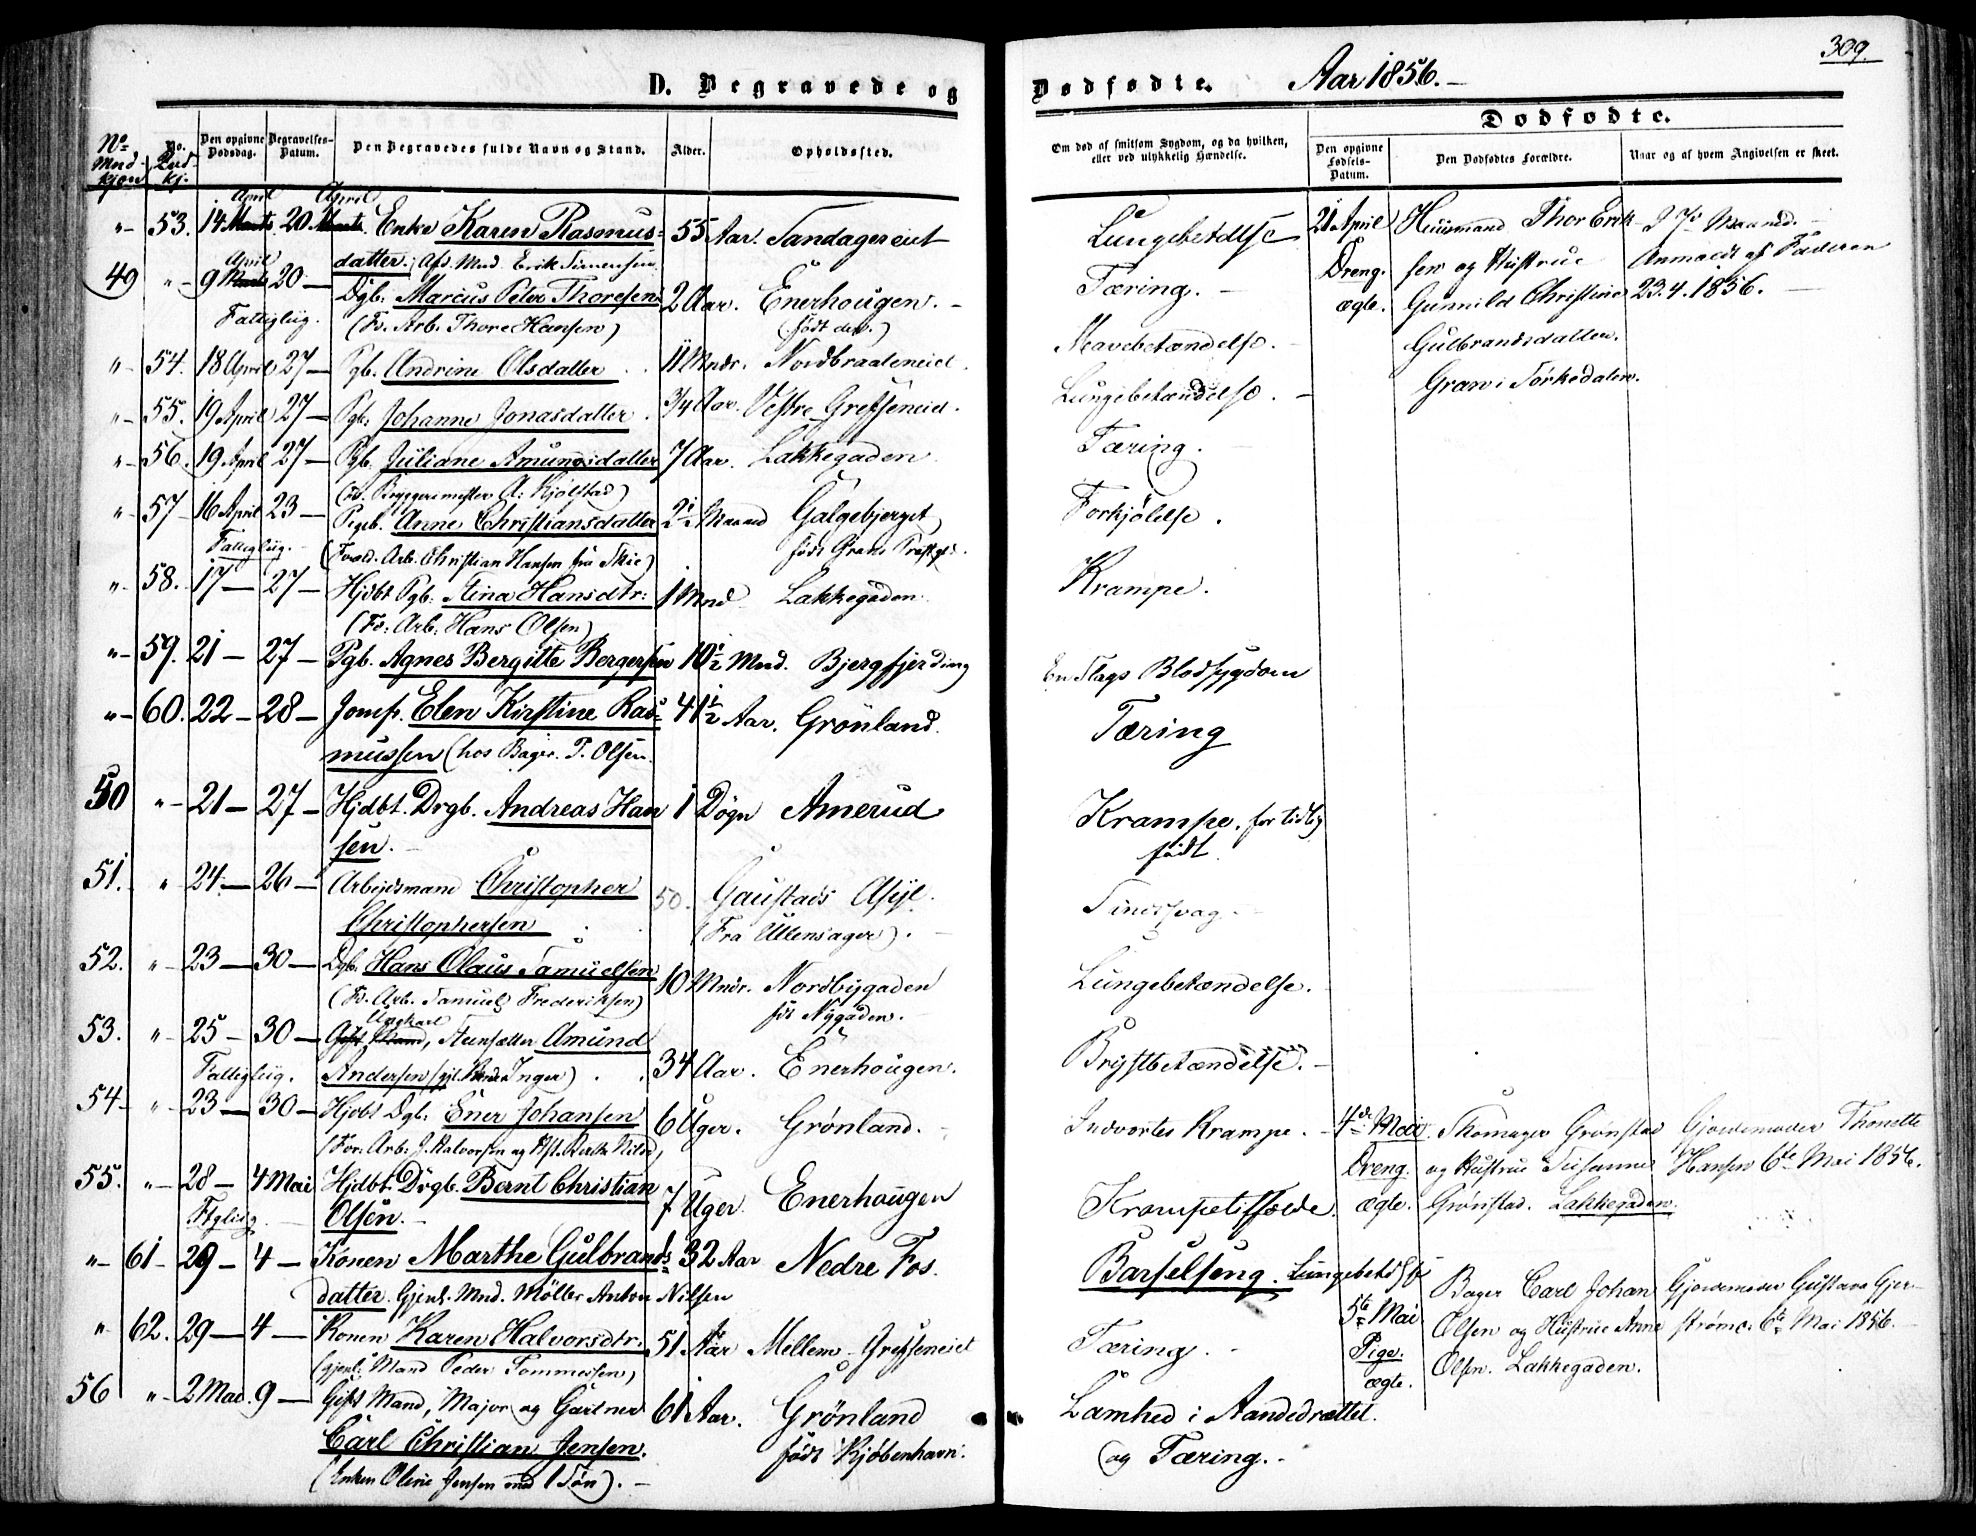 309.
D. Begravede og Dødfødte. Aar 1856.
Dødfødte.
No. Mndkjøn
No. Qvdkj.
Den opgivne Dødsdag.
Begravelses-Datum.
Den Begravedes fulde Navn og Stand.
Alder.
Opholdssted.
Om død af smitsom Sygdom, og da hvilken, eller ved ulykkelig Hændelse.
Den opgivne Fødsels-Datum.
Den Dødfødtes Forældre.
Naar og af hvem Angivelsen er skeet.
April April
"- 53. 14 Marts 20 Marts. Enke Karen Rasmus- 55 Aar. Sandagereiet Lungebetdlse
datter. Afd. Mnd. Erik Simensen
April
49 "- 9 Marts 20 - Dgb. Marcus Peter Thoresen 2 Aar. Enerhougen. - Tæring. -
Fattiglig. (Fd. Arb. Thore Hansen) (født der.)
"- 54. 18 April 27 - Pgb. Andrine Olsdatter 11 Mndr. Nordbraateneiet. Mavebetændelse.
"- 55. 19 April 27 - Pgb. Johanne Jonasdatter. 3/4 Aar. Vestre Grefseneiet. Lungebetændelse.
"- 56. 19 April 27 - Pgb. Juliane Amundsdatter 7 Aar. Lakkegaden Tæring.
(hos Bryggerimester A. Kjølstad)
"- 57 16 April 23 - Pigeb. Anne Christiansdatter 2½ Maaned Galgebjerget Forkjølelse.
Fattiglig. (Forld. Arb. Christian Hansen fra Skie) født Grans Præstgd.
"- 58. 17 - 27 - Hjdbt Pgb. Stina Hansdtr: 1 Mnd Lakkegaden. Krampe.
(Fd: Arb: Hans Olsen)
"- 59. 21 - 27 - Pgb. Agnes Bergitte Bergersen 10½ Mnd. Bjergfjerding En Slags Blodsygdom
"- 60. 22 - 28 - Jomf. Elen Kirstine Ras- 41½ Aar. Grönland. Tæring
mussen (hos Bager. T. Olsen.
50 "- 21 - 27 - Hjdbt. Drgb. Andreas Han 1 Døgn Amerud Krampe. for tidlig
sen. - født.
51. "- 24. - 26 - Arbejdsmand Christopher 50. Gaustads Asyl. Sindssvag.
Christophersen (Fra Ullensager).
52. "- 23 - 30 - Dgb. Hans Olaus Samuelsen 10 Mndr. Nordbygaden Lungebetændelse.
(Fd. Arb. Samuel Frederiksen) fdt Nygaden.
Ungkarl
53. "- 25 - 30 - Gift Mand, Steensætter Amund 34 Aar. Enerhougen. Brystbetændelse. -
Fattiglig. Andersen (gjl. Inger)
54 - "- 23 - 30 - Hjdbt Dgb. Ener Johansen 6 Uger. Grønland. Indvortes Krampe.
(For. Arb. J. Halvorsen og Hst.
55. "- 28 - 4 Mai Hjdbt. Drgb. Bernt Christian 7 Uger. Enerhougen Krampetilfælde.
Ftglig. - Olsen. -
"- 61 - 29 - 4 - Konen Marthe Gulbrands- 32 Aar Nedre Fos. Barselseng. Lungebetdlse
datter. Gjenl. Mnd. Möller Anton Nilsen
"- 62. 29 - 4 - Konen Karen Halvorsdtr: 51 Aar Mellem-Grefseneiet Tæring. -
(gjenl: Mand Peder Tommessen)
56 "- 2 Mai. 9 - Gift Mand, Major og Gartner 61 Aar. Grønland Lamhed i Aandedrættet.
Carl Christian Jensen. født Kjøbenhavn. og Tæring. -
(Enken Oline Jensen med 1 Søn). -
21 April Dreng. ægte.
Huusmand Thor Erik-
sen og Hustrue
Gunnild Christine
Gulbrandsdatter.
Gran i Sørkedalen.
Anmeldt af Faderen
23.4.1856.
4de Mai Dreng. ægte.
Grønstad
og Hustrue Susanne
Grønstad. Lakkegaden.
Gjordemoder Thonette
Hansen 6te Mai 1856.
5te Mai Pige. ægte.
Bager Carl Johan
Olsen og Hustrue Anne
Olsen. Lakkegaden.
Gjordemoder Gustava Gjer-
strøm. 6te Mai 1856.